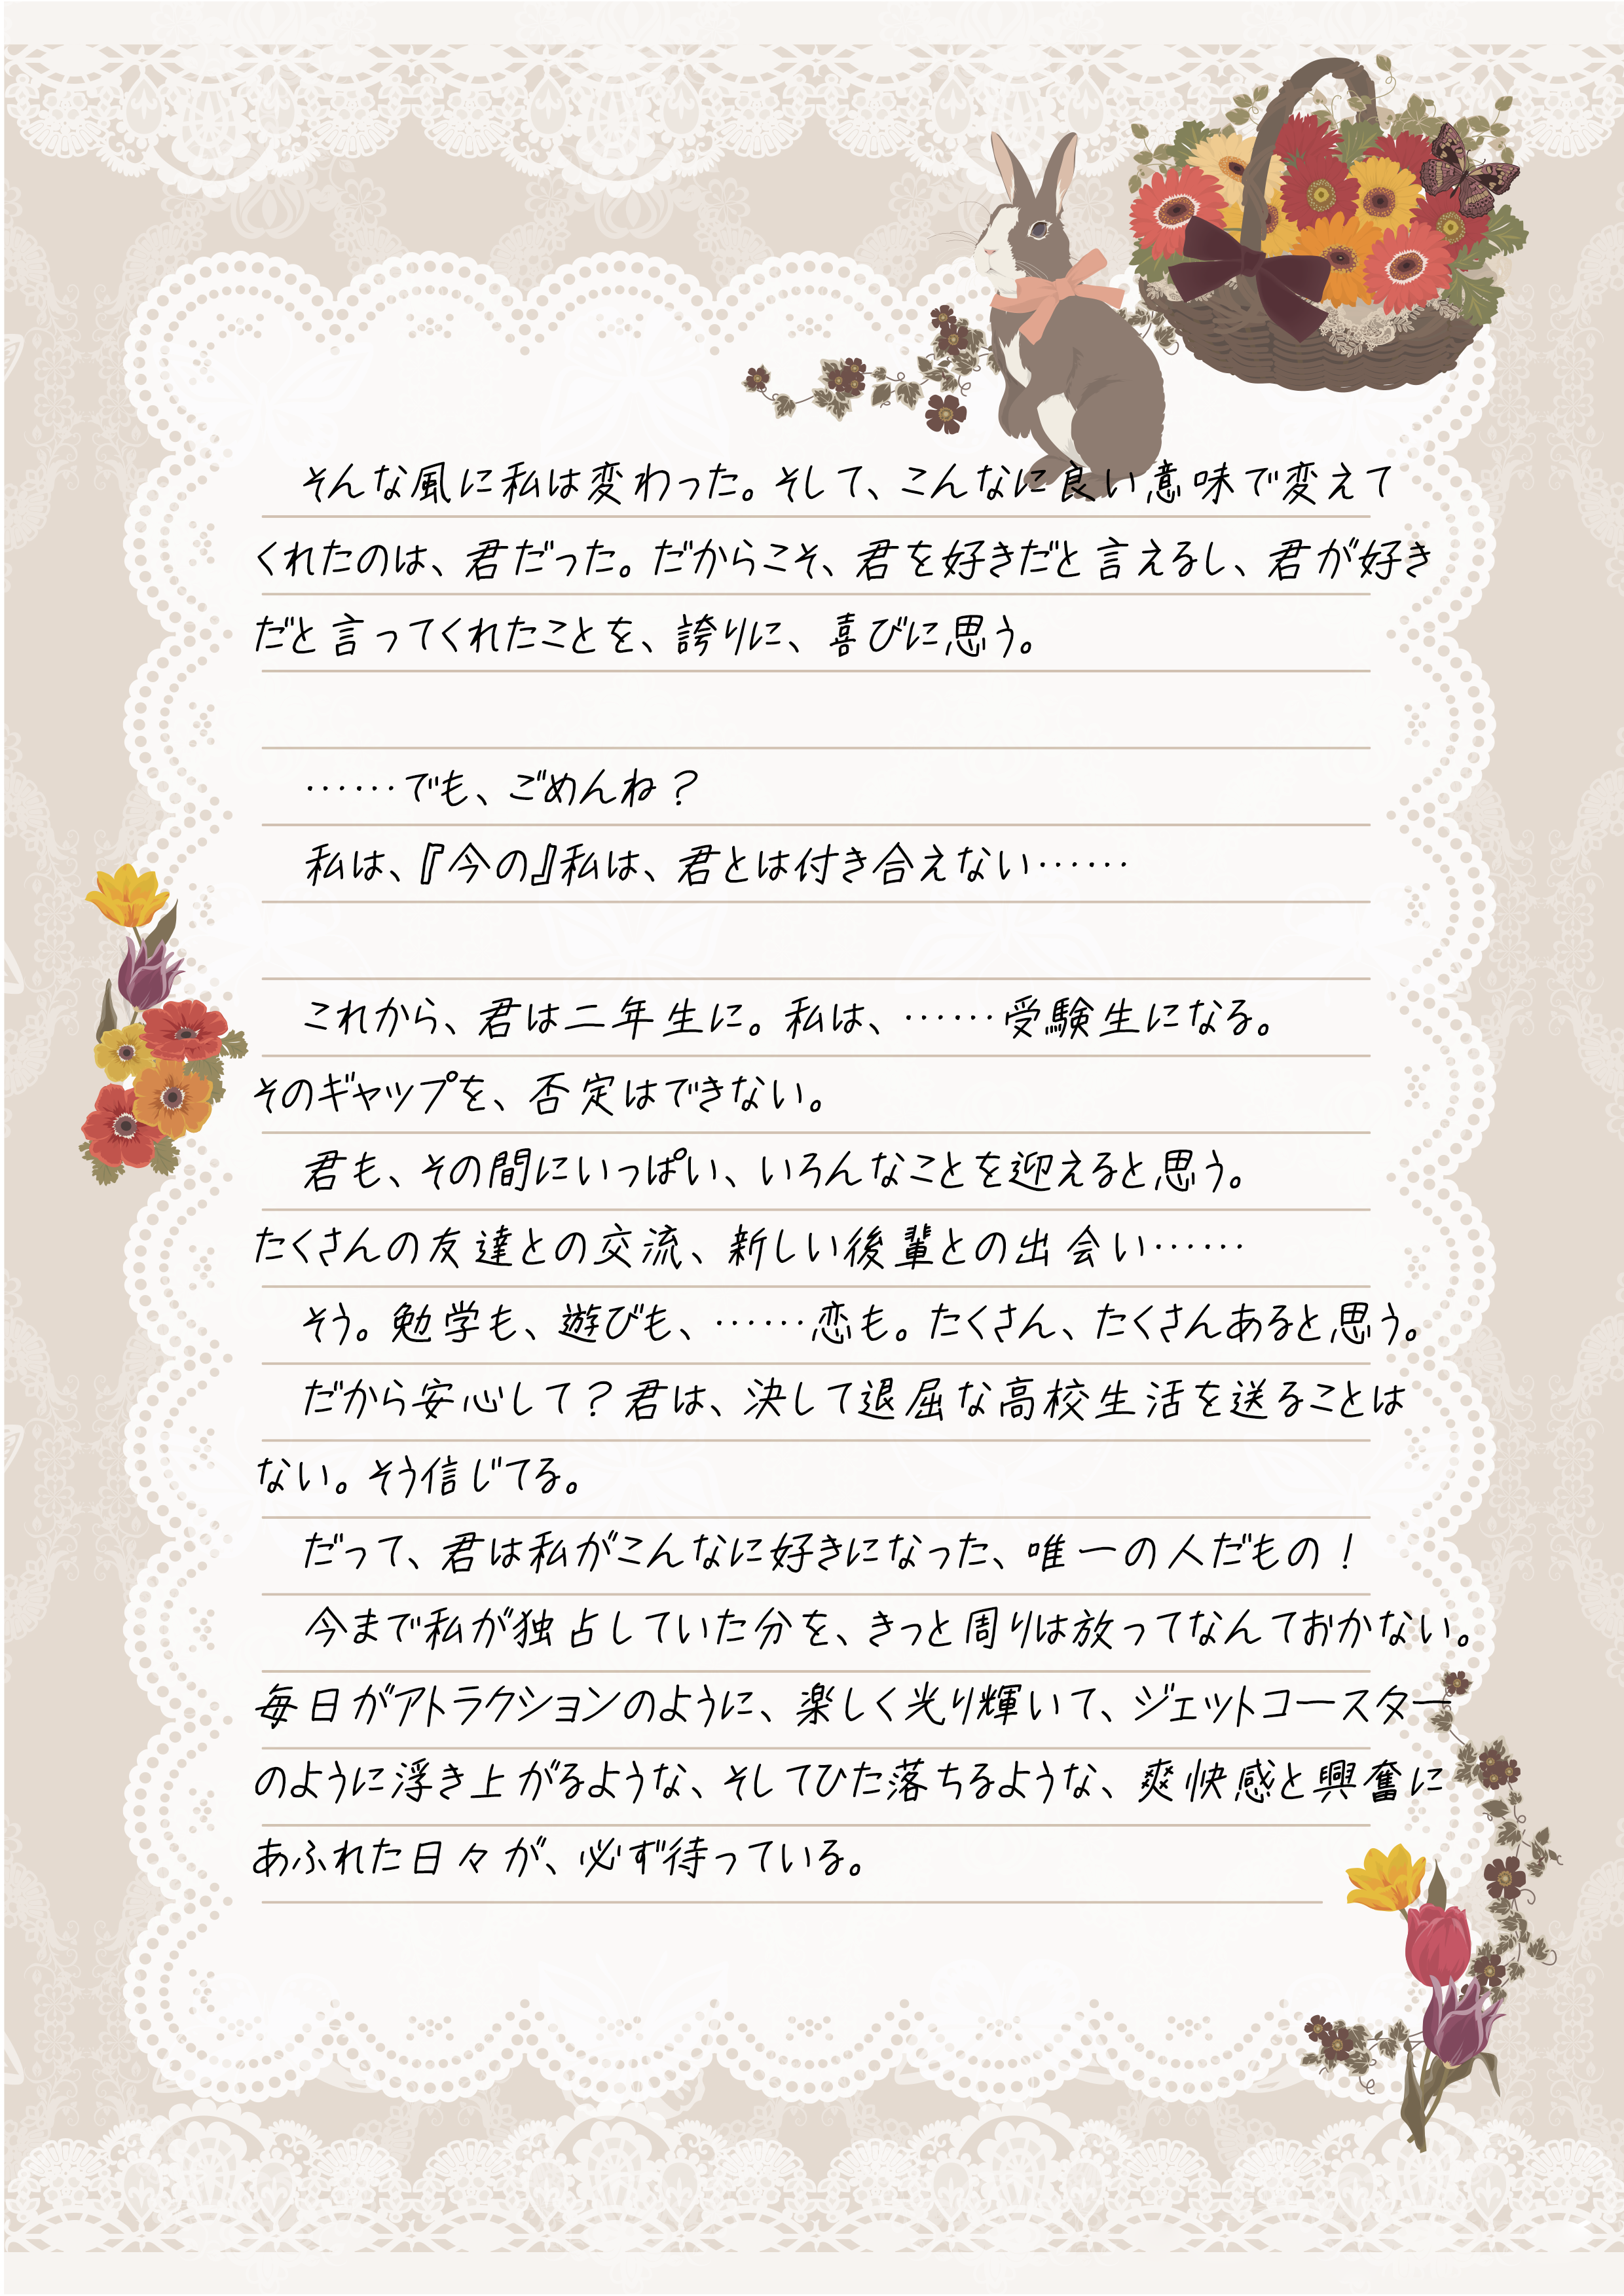 そんな風に私は変わった。そして、こんなに良い意味で変えて
くれたのは、君だった。だからこそ、君を好きだと言えるし、君が好き
だと言ってくれたことを、誇りに、喜びに思う。
……でも、ごめんね？
私は、『今の』私は、君とは付き合えない……
これから、君は二年生に。私は、……受験生になる。
そのギャップを、否定はできない。
君も、その間にいっぱい、いろんなことを迎えると思う。
たくさんの友達との交流、新しい後輩との出会い……
そう。勉学も、遊びも、……恋も。たくさん、たくさんあると思う。
だから安心して？君は、決して退屈な高校生活を送ることは
ない。そう信じてる。
だって、君は私がこんなに好きになった、唯一の人だもの！
今まで私が独占していた分を、きっと周りは放ってなんておかない。
毎日がアトラクションのように、楽しく光り輝いて、ジェットコースター
のように浮き上がるような、そしてひた落ちるような、爽快感と興奮に
あふれた日々が、必ず待っている。